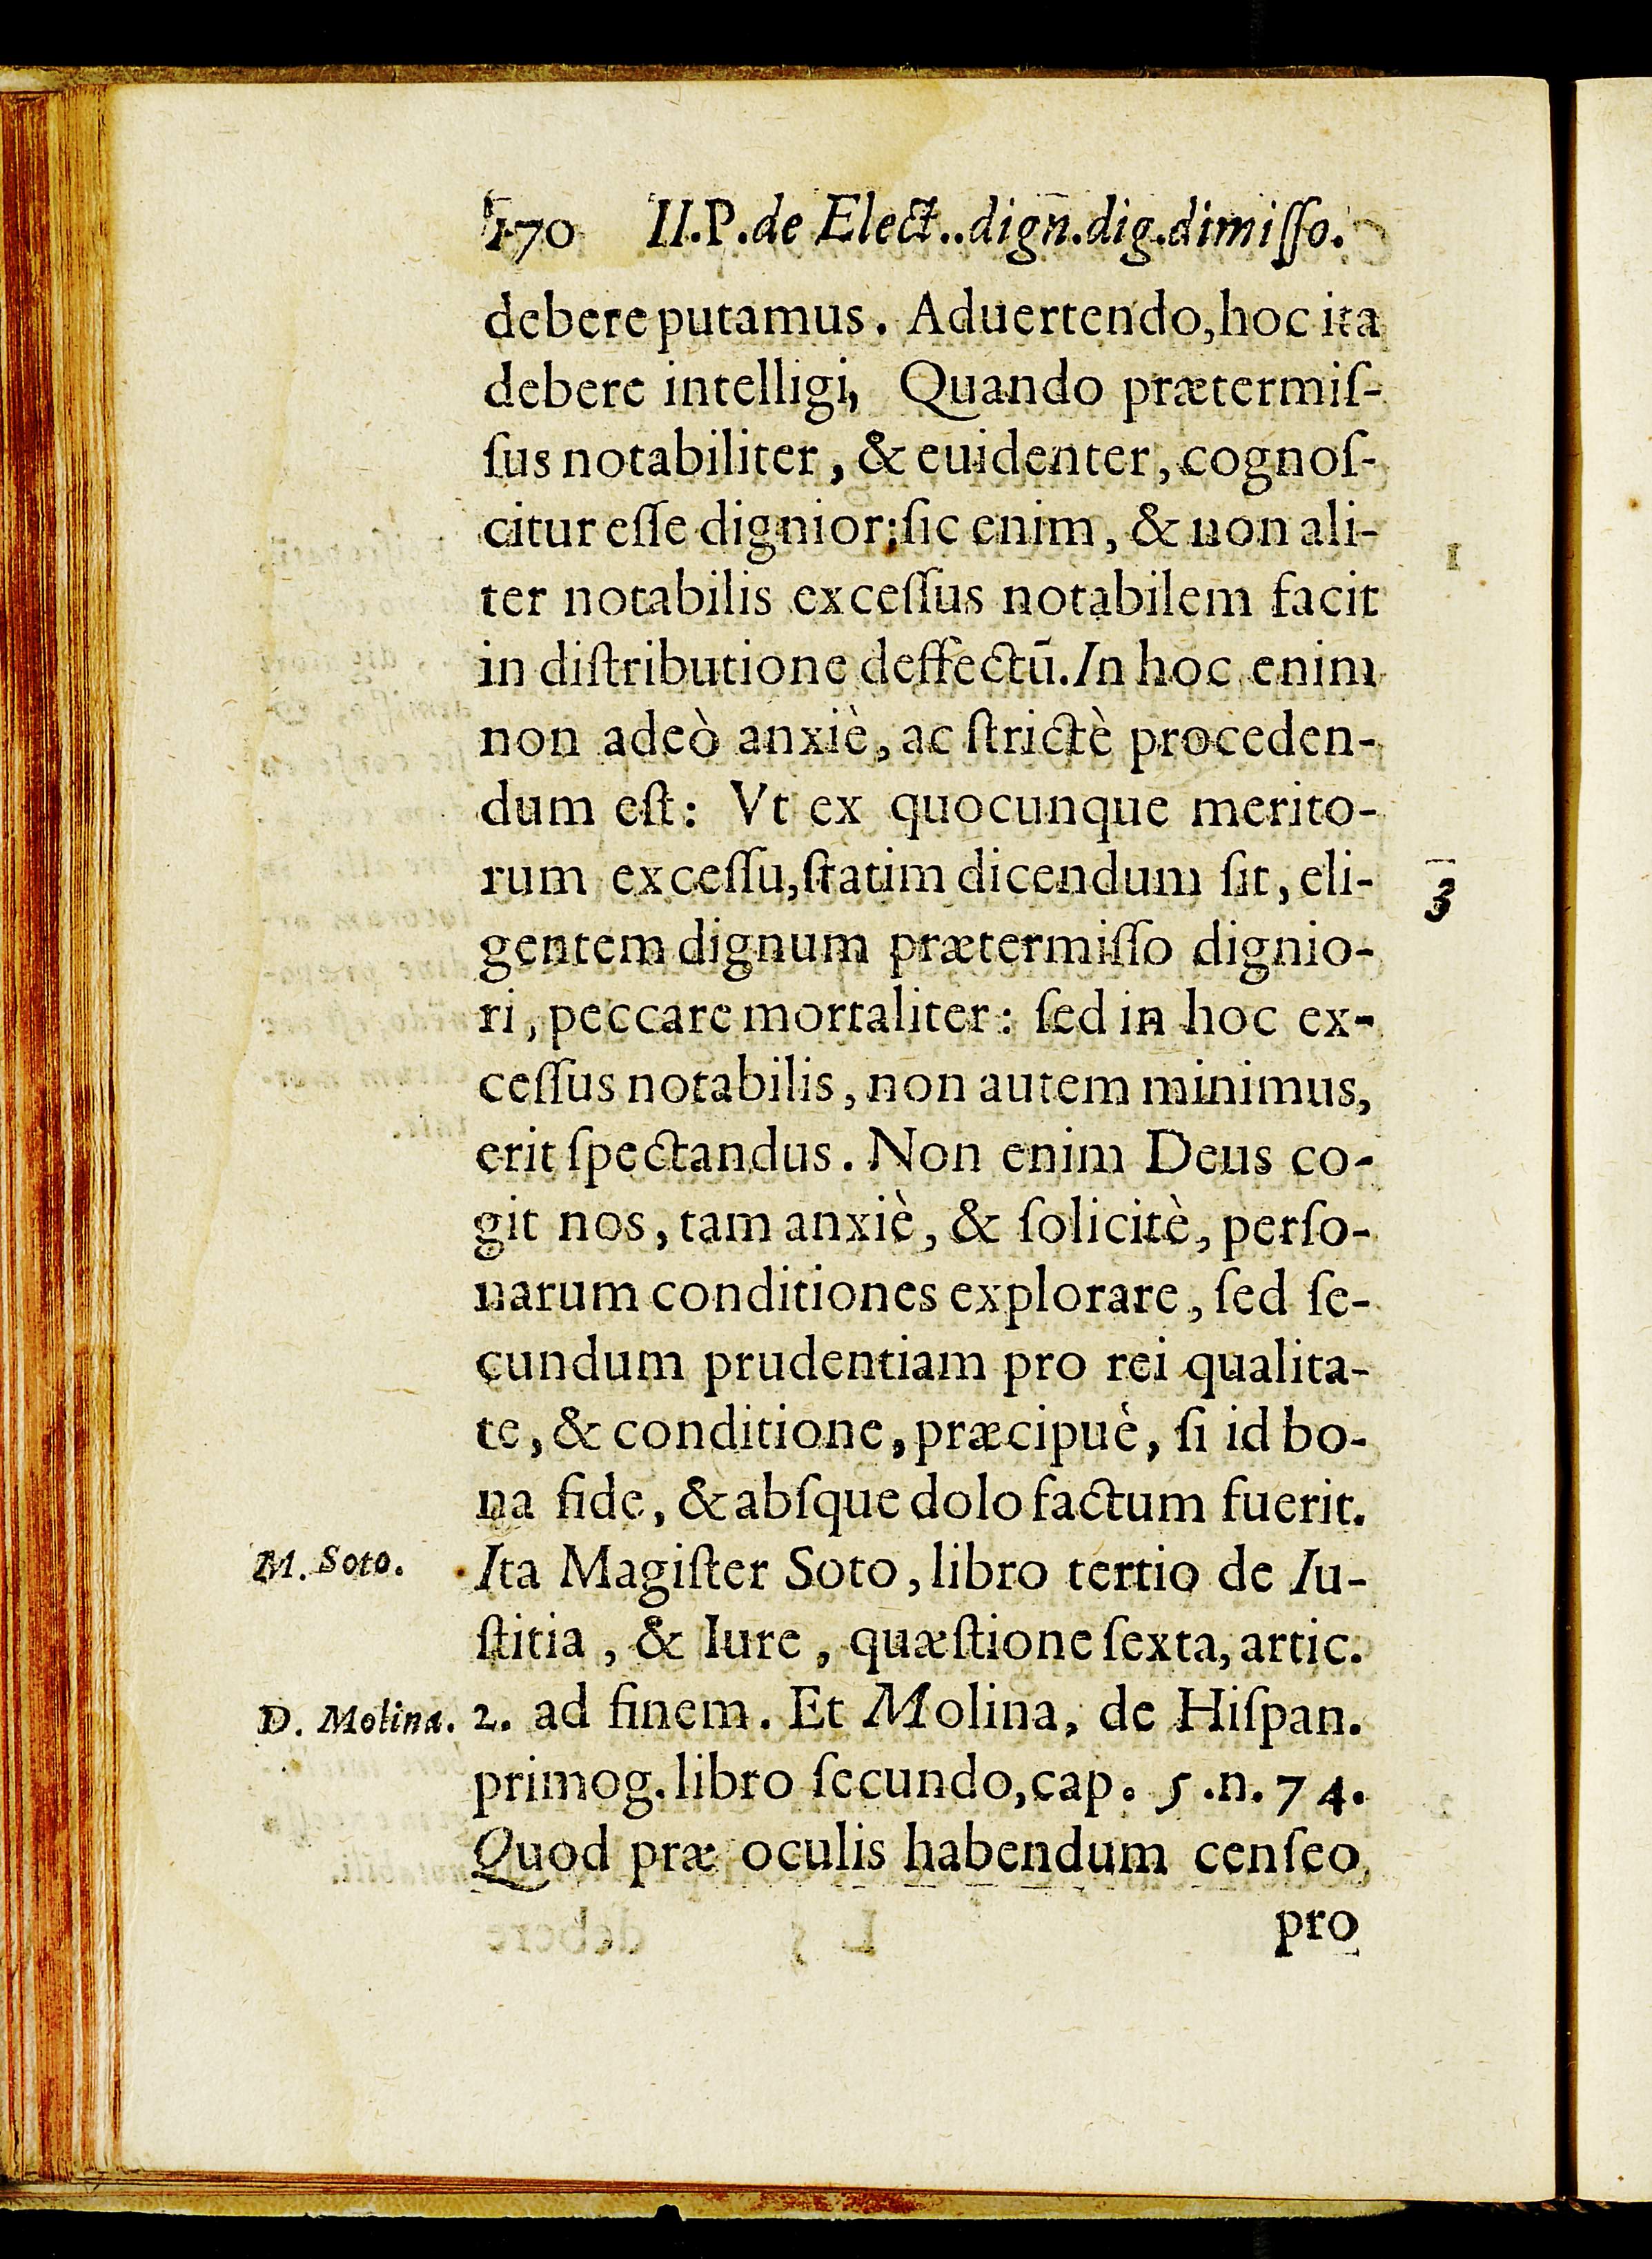 170 II.P.de Elect..dign̄.dig.dimiſſo.
debere putamus. Aduertendo, hoc ita
debere intelligi, Quando prætermiſ-
ſus notabiliter, & euidenter, cognoſ-
citur eſſe dignior: ſic enim, & non ali-
ter notabilis exceſſus notabilem facit
in diſtributione deffectū. In hoc enim
non adeò anxiè, ac ſtrictè proceden-
dum eſt: Vt ex quocunque merito-
rum exceſſu, ſtatim dicendum ſit, eli-
3
gentem dignum prætermiſſo dignio-
ri, peccare mortaliter: ſed in hoc ex-
ceſſus notabilis, non autem minimus,
erit ſpectandus. Non enim Deus co-
git nos, tam anxiè, & ſolicitè, perſo-
narum conditiones explorare, ſed ſe-
cundum prudentiam pro rei qualita-
te, & conditione, præcipuè, ſi id bo-
na fide, & abſque dolo factum fuerit.
M. Soto.
Ita Magiſter Soto, libro tertio de Iu-
ſtitia, & Iure, quæſtione ſexta, artic.
D. Molina.
2. ad finem. Et Molina, de Hiſpan.
primog. libro ſecundo, cap. 5.n.74.
Quod præ oculis habendum cenſeo
pro